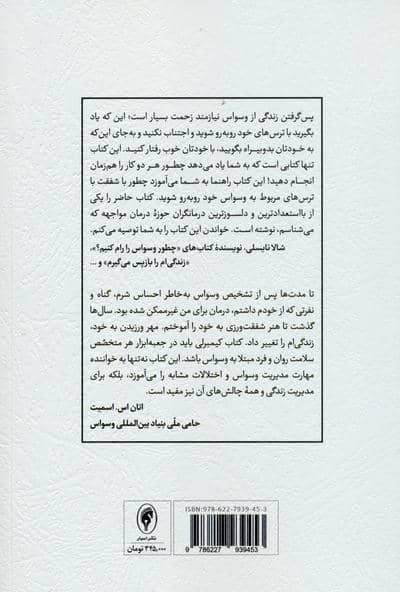 پس‌گرفتن زندگی از وسواس نیازمند زحمت بسیار است؛ این که یاد
بگیرید با ترس‌های خود روبه‌رو شوید و اجتناب نکنید و به‌جای این‌که
به خودتان بدوبیراه بگویید، با خودتان خوب رفتار کنید. این کتاب
تنها کتابی است که به شما یاد می‌دهد چطور هر دو کار را هم‌زمان
انجام دهید! این کتاب راهنما به شما می‌آموزد چطور با شفقت با
ترس‌های مربوط به وسواس خود روبه‌رو شوید. کتاب حاضر را یکی
از بااستعدادترین و دلسوزترین درمانگران حوزهٔ درمان مواجهه که
می‌شناسم، نوشته است. خواندن این کتاب را به شما توصیه می‌کنم.
شالا نایسلی، نویسندهٔ کتاب‌های «چطور وسواس را رام کنیم؟»،
«زندگی‌ام را بازپس می‌گیرم» و ...
تا مدت‌ها پس از تشخیص وسواس به‌خاطر احساس شرم، گناه و
نفرتی که از خودم داشتم، درمان برای من غیرممکن شده بود. سال‌ها
گذشت تا هنر شفقت‌ورزی به خود را آموختم. مهر ورزیدن به خود،
زندگی‌ام را تغییر داد. کتاب کیمبرلی باید در جعبه‌ابزار هر متخصص
سلامت روان و فرد مبتلا به وسواس باشد. این کتاب نه‌تنها به خواننده
مهارت مدیریت وسواس و اختلالات مشابه را می‌آموزد، بلکه برای
مدیریت زندگی و همهٔ چالش‌های آن نیز مفید است.
اتان اس. اسمیت
حامی ملّی بنیاد بین‌المللی وسواس
ISBN: 978-622-7939-45-3
9 786227 939453
نشر اسبار
۳۴۵,۰۰۰ تومان